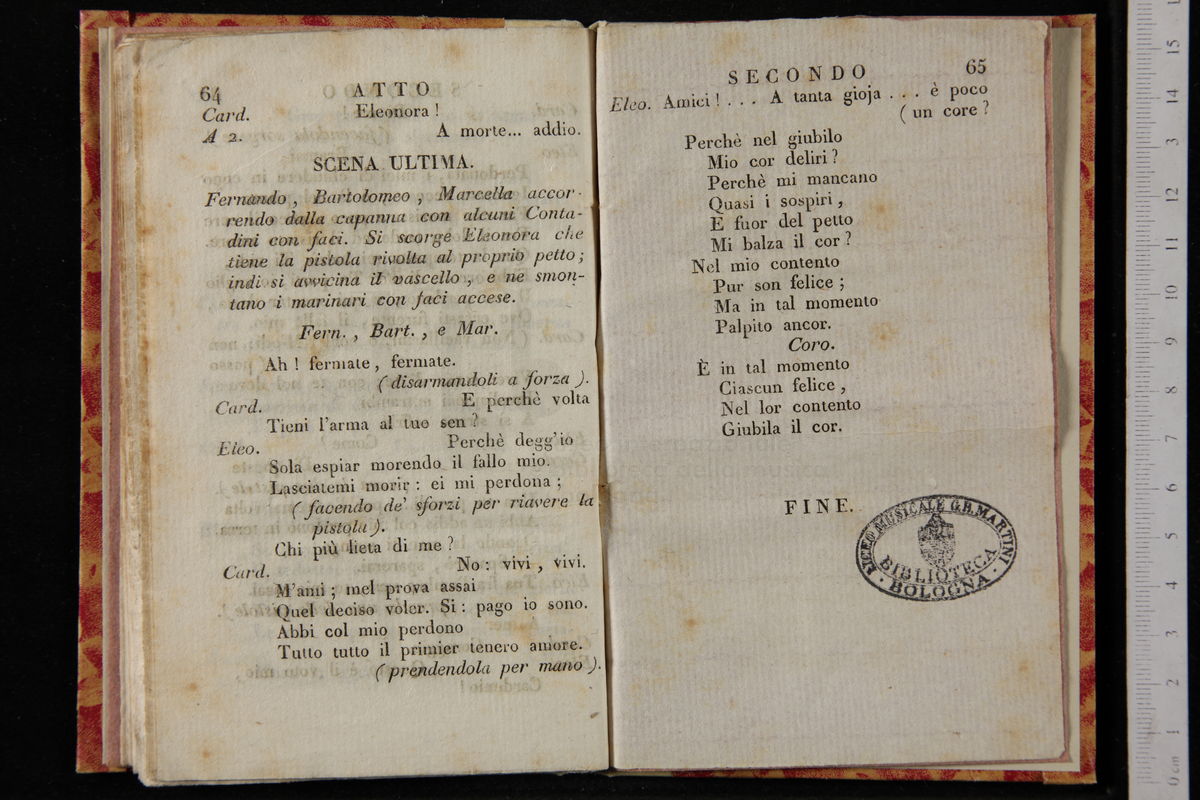 64 ATTO
Card. Eleonora !
A 2. A morte... addio.
SCENA ULTIMA.
Fernando , Bartolomeo , Marcella accor-
rendo dalla capanna con alcuni Conta-
dini con faci. Si scorge Eleonora che
tiene la pistola rivolta al proprio petto ;
indi si avvicina il vascello , e ne smon-
tano i marinari con faci accese.
Fern. , Bart. , e Mar.
Ah ! fermate , fermate.
( disarmandoli a forza ).
Card. E perchè volta
Tieni l'arma al tuo sen ?
Eleo. Perchè degg'io
Sola espiar morendo il fallo mio.
Lasciatemi morir : ei mi perdona ;
( facendo de' sforzi per riavere la
pistola ).
Chi più lieta di me ?
Card. No : vivi , vivi.
M'ami ; mel prova assai
Quel deciso voler. Si : pago io sono.
Abbi col mio perdono
Tutto tutto il primier tenero amore.
( prendendola per mano ).
SECONDO 65
Eleo. Amici ! . . . A tanta gioja . . . è poco
( un core ?
Perchè nel giubilo
Mio cor deliri ?
Perchè mi mancano
Quasi i sospiri ,
E fuor del petto
Mi balza il cor ?
Nel mio contento
Pur son felice ;
Ma in tal momento
Palpito ancor.
Coro.
È in tal momento
Ciascun felice ,
Nel lor contento
Giubila il cor.
FINE.
LICEO MUSICALE G.B. MARTINI
BIBLIOTECA
· BOLOGNA ·
15
14
13
12
11
10
9
8
7
6
5
4
3
2
1
0 cm